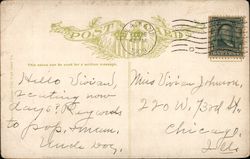 POST CARDS
This space can be used for a written message.
Hello Vivian,
eating now
days? Regards
to pop, & mum.
Uncle
Miss Vivian Johnson,
220 W. 73rd St.
Chicago,
Ills.